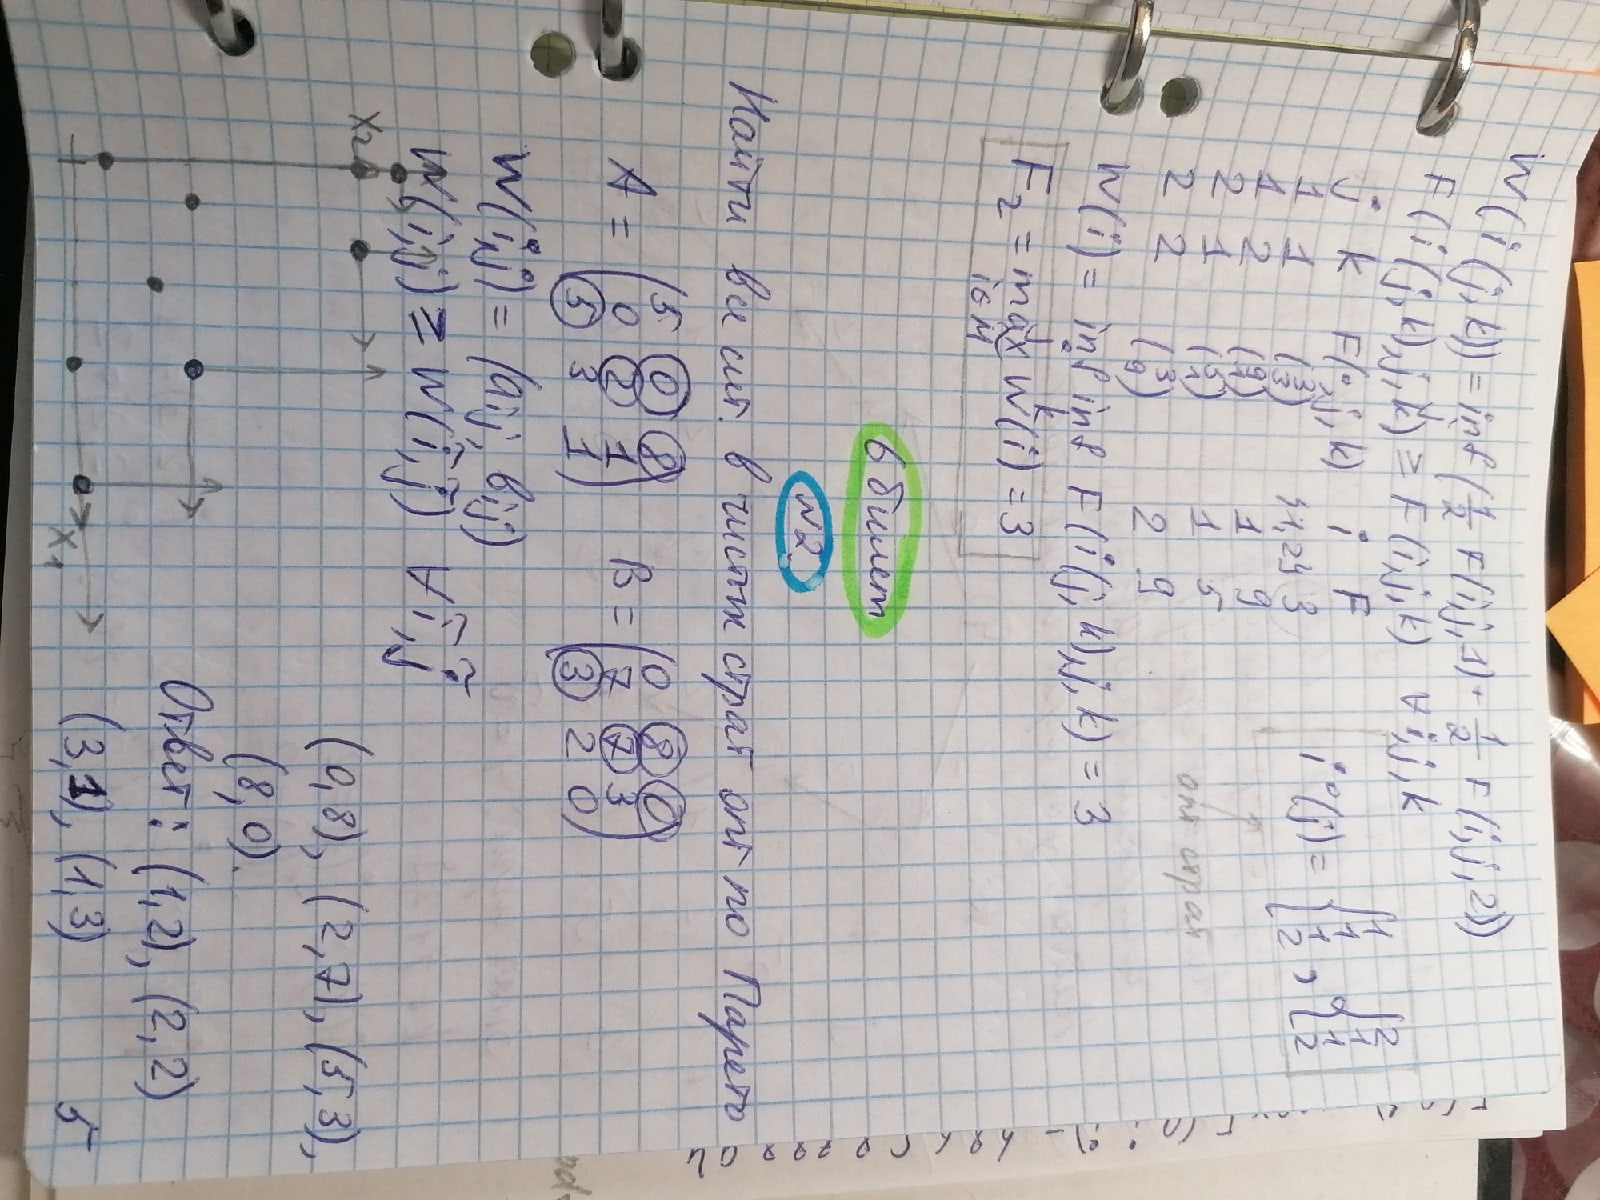 W(i(j,k)) = inf(1/2 F(i,j,1) + 1/2 F(i,j,2))
F(i°(j,k),j,k) ≥ F(i,j,k) ∀ i,j,k
j k F(i,j,k) i F
1 1 (3 3) 1,2 3
1 2 (9 1) 1 9
2 1 (5 1) 1 5
2 2 (3 9) 2 9
i°(j) = {1 1 2, {2 1 2
опт страт
W(i) = inf inf F(i°(j,k),j,k) = 3
j k
F₂ = max W(i) = 3
i∈M
6 билет
№2
Найти все сит. в чист страт опт по Парето
A = (5 0 8
0 2 1
5 3 1)
B = (0 8 0
7 7 3
3 2 0)
W(i,j) = (aij, bij)
W(i,j) ≥ W(ĩ,j̃) ∀ ĩ, j̃
x₂
x₁
(0,8), (2,7), (5,3),
(8,0).
Ответ: (1,2), (2,2)
(3,1), (1,3)
5